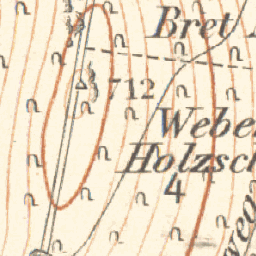 Bret
712
Webe
Holzsc
4
we